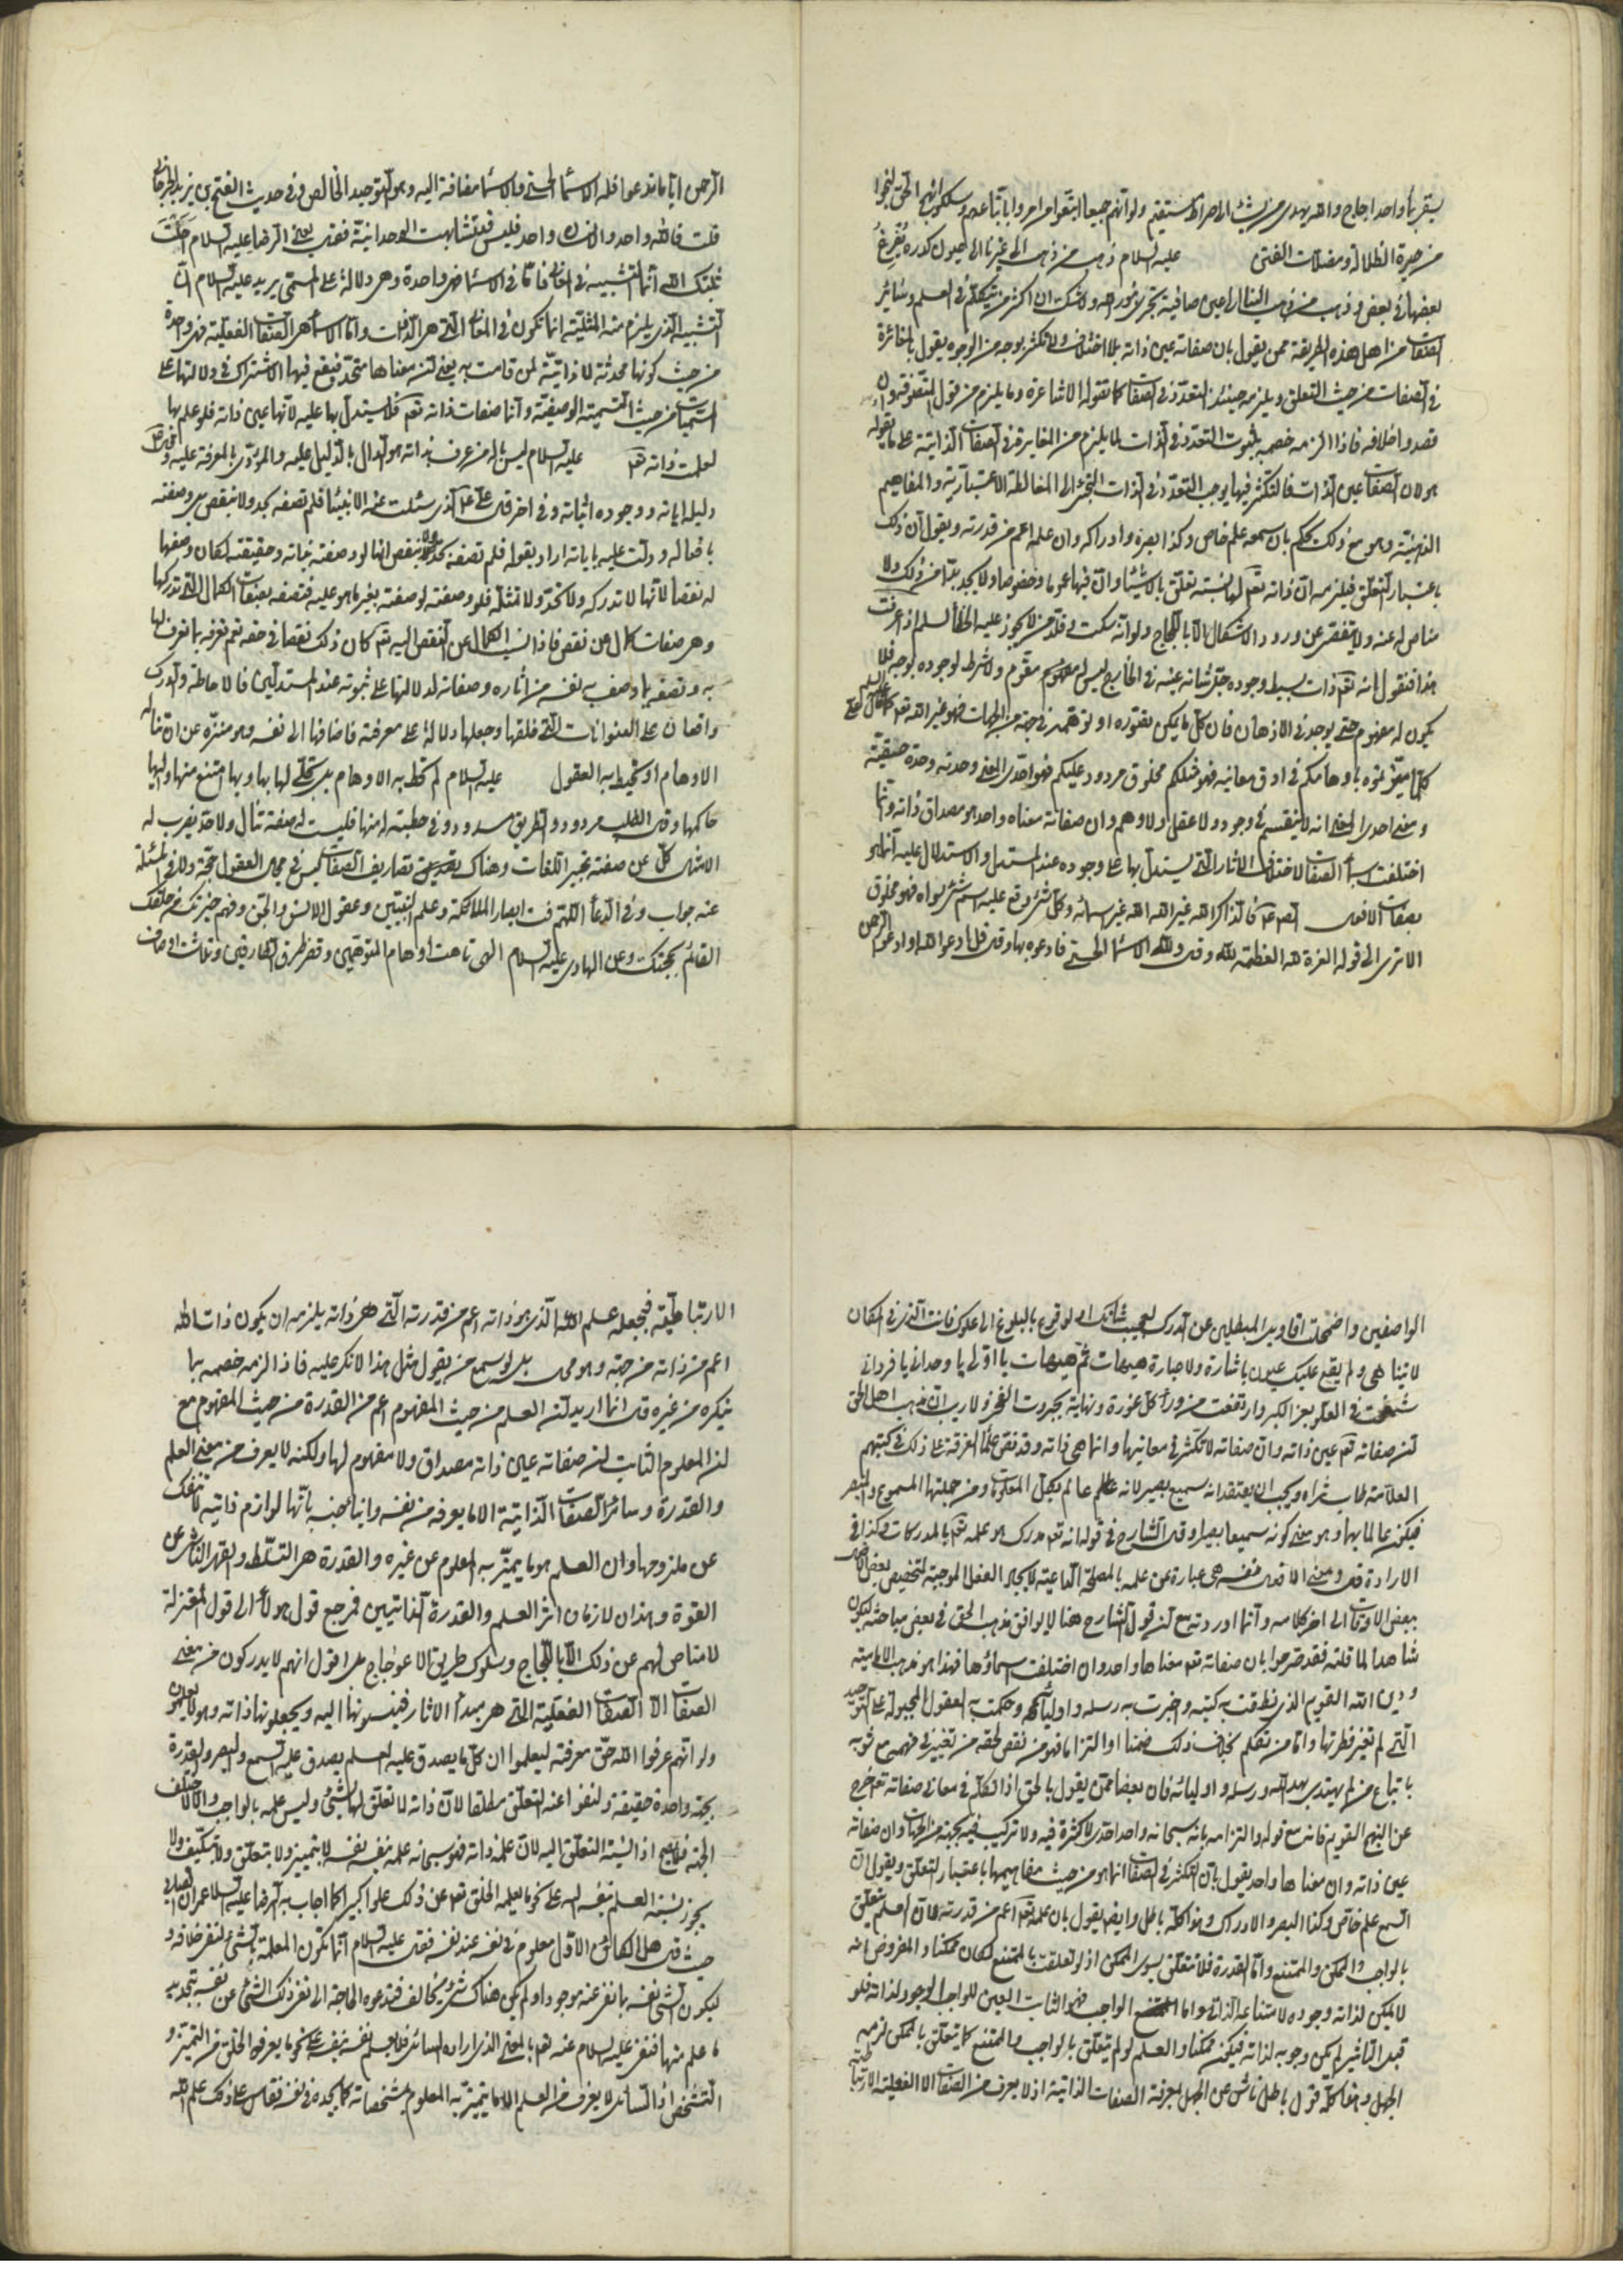 بعضها في بعض وذهب من ذهب الينا الى اعين صافية تجري بامور الله ولا شك ان اكثر من يتكلم في العلم وسائر
الصفات من اهل هذه الطريقة ممن يقول بان صفاته عين ذاته بلا اختلاف ولا تكثر بوجه من الوجوه يقول بالمغائرة
في الصفات من حيث التعلق ويلزمه حينئذ التعدد في الصفات كما تقوله الاشاعرة وما يلزم من قول المتصوفة وان
قصدوا خلافه فاذا الزمه خصمه بثبوت التعدد في الذات لما يلزم من المغايرة في الصفات الذاتية على ما يقوله
هو لان الصفات عين الذات فالتكثر فيها يوجب التعدد في الذات التجئ الى المغالطة الاعتبارية والمفاهيم
الذهنية وهو مع ذلك يحكم بان سمعه علم خاص وكذا بصره وادراكه وان علمه اعم من قدرته ويقول ان ذلك
باعتبار التعلق فيلزمه ان ذاته تعالى لها نسبة تعلق بالاشياء وان فيها عموما وخصوصا ولا يجد بدا من ذلك ولا
مناص له عنه ولا يتفصى عن ورود الاشكال الا باللجاج ولو انه سكت
هذا فنقول انه تعالى ذات بسيط وجوده جل شانه عينه في الخارج ليس له مفهوم مقوم ولا شرط لوجوده بوجه فلا
يكون له مفهوم حتى يوجد في الاذهان فان كل ما يمكن تصوره او توهمه في جهة من الجهات فهو غير الله تعالى
كلما ميزتموه باوهامكم في ادق معانيه فهو مثلكم مخلوق مردود عليكم فهو احدي المعنى وحدته وحدة حقيقية
ومعنى احدي المعنى انه لا ينقسم في وجود ولا عقل ولا وهم وان صفاته معناه واحد هو مصداق ذاته وانما
اختلفت اسماء الصفات لاختلاف الاثار التي يستدل بها على وجوده عند المستدل والاستدلال عليه انما هو
بصفات الافعال فالذاكر الله غير الله والله غير اسمائه وكل شيء وقع عليه اسم شيء سواه فهو مخلوق
الا ترى الى قوله العزة لله العظمة لله وقال ولله الاسماء الحسنى فادعوه بها وقال قل ادعوا الله او ادعوا الرحمن
الرحمن اياما تدعوا فله الاسماء الحسنى فالاسماء مضافة اليه وهو التوحيد الخالص وفي حديث الفتح بن يزيد الجرجاني
قلت فالله واحد والانسان واحد فليس قد تشابهت الوحدانية فقال يعني الرضا عليه السلام احلت
ثبتك الله انما التشبيه في المعاني فاما في الاسماء فهي واحدة وهي دلالة على المسمى يريد عليه السلام ان
التشبيه الذي يلزم منه المثلية انما تكون في المعاني التي هي الذوات واما الاسماء هي الصفات الفعلية فهي واحدة
من حيث كونها محدثة لا ذاتية لمن قامت به يعني ان معناها متحد فيقع فيها الاشتراك في دلالتها على
المسميات من حيث التسمية الوصفية واما صفات ذاته تعالى فلا يستدل بها عليه لانها عين ذاته فلو علم بها
لعلمت ذاته عليه السلام ليس باله من عرف بذاته هو الدال بالدليل عليه والمؤدي بالمعرفة عليه
دليله اياته ووجوده اثباته وفي اخر قال علي الذي سئلت عنه الانبياء فلم تصفه بحد ولا بنقص بل وصفته
بافعاله ودلت عليه باياته اراد بقوله فلم تصفه بحد ولا بنقص انها لو وصفته بذاته وحقيقته لكان وصفها
له نقصا لانها لا تدركه ولا تحده ولا تمثله فلو وصفته لوصفته بغير ما هو عليه فتصفه بصفات الكمال التي تدركها
وهي صفات كمال من نقص فاذا نسب الكمال من النقص اليه تعالى كان ذلك نقصا في حقه نعم تعرفه بما تعرف لها
به وتصفه بما وصف به نفسه من اثاره وصفاته لدلالتها على ثبوته عند المستدلين فالاحاطة والدرك
واقعان على العنوانات التي خلقها وجعلها دلالة على معرفته فاضافها الى نفسه وهو منزه عن ان تناله
الاوهام او تحيط به العقول عليه السلام لم تحط به الاوهام بل تجلى لها بها وبها امتنع منها واليها
حاكمها وقال الطلب مردود والطريق مسدود وفي خطبته له منها فليست له صفة تنال ولا حد يضرب له
الامثال كل عن صفته تحبير اللغات وهناك تصاريف الصفات ليس في محال العقول حجة ولا في المسئلة
عنه جواب وفي الدعاء اللهم فت ابصار الملائكة وعلم النبيين وعقول الانس والجن وفهم خيرتك من خلقك
القائم بحجتك وعن الهادي عليه السلام الهي تاهت اوهام المتوهمين وقصر طرف الطارفين وتلاشت اوصاف
الواصفين واضمحلت اقاويل المبطلين عن الدرك لعجيب شانك او الوقوع بالبلوغ الى علوك فانت الذي في المكان
لا يتناهى ولم يقع عليك عيون باشارة ولا عبارة هيهات ثم هيهات يا اولي يا وحداني يا فرداني
شمخت في العلو بعز الكبر وارتفعت من وراء كل غورة ونهاية بجبروت الفخر ولا ريب ان مذهب اهل الحق
ان صفاته تعالى عين ذاته وان صفاته لا تكثر في معانيها وانما هي ذاته وقد نص علماء الفرقة على ذلك في كتبهم
العلامة طاب ثراه ويجب ان يعتقد انه سميع بصير لانه عالم بكل المعلومات ومن جملتها المسموع والمبصر
فيكون عالما بها وهو معنى كونه سميعا بصيرا وقال الشارح في قوله انه تعالى مدرك هو علمه تعالى بالمدركات وكذا في
الارادة قال ومعنى الافعال نفسه هي عبارة عن علمه بالمصلحة الداعية لايجاد الفعل الموجبة لتخصيص بعض الافعال
ببعض الاوقات الى اخر كلامه وانما اوردته مع ان قول الشارح هنا لا يوافق مذهب الحق في بعض مباحثه ليكون
شاهدا لما قلته فقد صرحوا بان صفاته تعالى معناها واحد وان اختلفت اسماؤها فهذا هو مذهب الامامية
ودين الله القويم الذي نطقت به كتبه واخبرت به رسله واولياؤه وحكمت به العقول المجبولة على التوحيد
التي لم تغير فطرتها واما من تكلم بخلاف ذلك ضمنا او التزاما فهو من نقص لحقه من تغيير في فهمه مع شوبه
باتباع من لم يهتد بهدى الله ورسله واوليائه فان بعضا ممن يقول بالحق اذا تكلم في معاني صفاته تعالى خرج
عن النهج القويم فانه مع قوله والتزامه بانه سبحانه واحد احدي لا كثرة فيه ولا تركيب فيه بجهة من الجهات وان صفاته
عين ذاته وان معناها واحد يقول بان التكثر في الصفات انما هو من حيث مفاهيمها باعتبار التعلق ويقول ان
السمع علم خاص وكذا البصر والادراك وهذا كله باطل وايضا يقول بان علمه تعالى اعم من قدرته لان العلم يتعلق
بالواجب والممكن والممتنع واما القدرة فلا تتعلق بسوى الممكن اذ لو تعلقت بالممتنع لكان ممكنا والمفروض انه
لا يمكن لذاته وجوده لامتناعه الذاتي واما الواجب فهو الثابت العين للواجب الوجود لذاته فلو
قبل التاثير لم يكن وجوبه لذاته فيكون ممكنا والعلم لو لم يتعلق بالواجب والممتنع كما تعلق بالممكن لزمه
الجهل وهذا كله قول باطل ناش عن الجهل بمعرفة الصفات الذاتية اذ لا يعرف من الصفات الا الفعلية الارتباطية
الارتباطية فجعله علم الله الذي هو ذاته اعم من قدرته التي هي ذاته يلزمه ان يكون ذات الله
اعم من ذاته من جهة وهو محال بل لو سمع من يقول مثل هذا لانكر عليه فاذا الزمه خصمه بما
ينكره من غيره قال انما اريد ان العلم من حيث المفهوم اعم من القدرة من حيث المفهوم مع
ان المعلوم الثابت ان صفاته عين ذاته مصداق ولا مفهوم لها ولكنه لا يعرف من معنى العلم
والقدرة وسائر الصفات الذاتية الا ما يعرفه من نفسه وابناء جنسه بانها لوازم ذاتية لا تنفك
عن ملزومها وان العلم هو ما يميز به المعلوم عن غيره والقدرة هي التسلط والقهر الناشي عن
القوة وهذان لازمان اثر العلم والقدرة الذاتيين فمرجع قول هؤلاء الى قول المعتزلة
لا مناص لهم عن ذلك الا باللجاج وسلوك طريق الاعوجاج بل اقول انهم لا يدركون من معنى
الصفات الا الصفات الفعلية التي هي مبدا الاثار فينسبونها اليه ويجعلونها ذاته وهم لا يعلمون
ولو انهم عرفوا الله حق معرفته ليعلموا ان كل ما يصدق عليه العلم يصدق عليه السمع والبصر والقدرة
بجهة واحدة حقيقة ولنفوا عنه التعلق مطلقا لان ذاته لا تعلق لها بشيء وليس علمه بالواجب والا لاختلف
الجهة فلا يصح اذا نسبة التعلق اليه لان علمه ذاته فهو سبحانه علمه نفسه بنفسه لا بتمييز ولا بتعلق ولا بتكيف ولا
يجوز نسبة العلم بنفسه اليه على نحو ما يعلمه الخلق تعالى عن ذلك علوا كبيرا كما اجاب به الرضا عليه السلام عمران الصابي
حيث قال هل الكائن الاول معلوم في نفسه عند نفسه فقال عليه السلام انما تكون المعلمة بالشيء لنفي خلافه و
ليكون الشيء نفسه بما نفي عنه موجودا ولم يكن هناك شيء يخالفه فتدعوه الحاجة الى نفي ذلك الشيء عن نفسه بتحديد
ما علم منها فنفى عليه السلام عنه تعالى بالمعنى الذي اراده السائل فلا يعلم نفسه بنفسه على نحو ما يعرفه الخلق من التميز و
التشخص اذ السائل لا يعرف من العلم الا ما يتميز به المعلوم بمشخصاته كما يجده في نفسه فقاس على ذلك علم الله